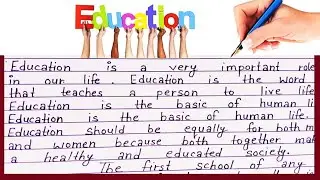 Education
Education is a very important role
in our life. Education is the word
that teaches a person to live life
Education is the basic of human li
Education is the basic of human life.
Education should be equally for both m
and women because both together mak
a healthy and educated society.
The first school of any